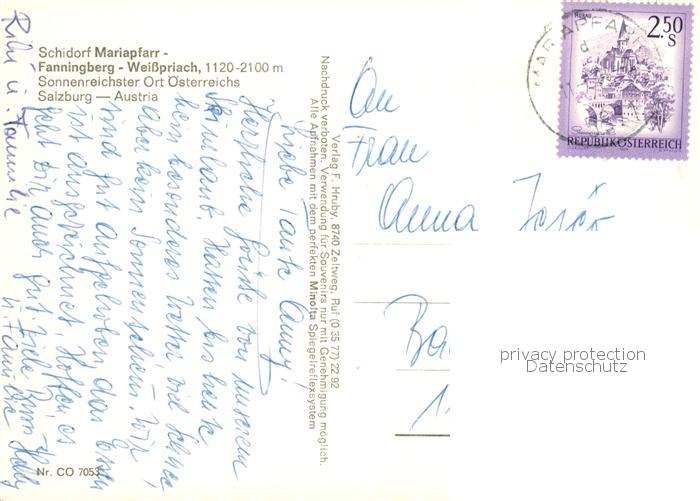 Schidorf Mariapfarr -
Fanningberg - Weißpriach, 1120-2100 m
Sonnenreichster Ort Österreichs
Salzburg — Austria
Nachdruck verboten, Verwendung für Souvenirs nur mit Genehmigung möglich.
Verlag F. Hruby, 8740 Zeltweg, Ruf (0 35 77) 22 92
Alle Aufnahmen mit dem perfekten Minolta Spiegelreflexsystem
Liebe Tante Anny!
Herzliche Grüße von unserem
Skiurlaub. Hatten bis heute
kein besonderes Wetter, viel Schnee,
aber kein Sonnenschein. Wir
sind gut aufgehoben das Essen
ist ausgezeichnet. Hoffen, es
geht Dir auch gut. Viele
u. Familie
u. Familie
An
Frau
Anna
Nr. CO 7053
MARIAPFARR
2.50
S
REPUBLIK ÖSTERREICH
privacy protection
Datenschutz